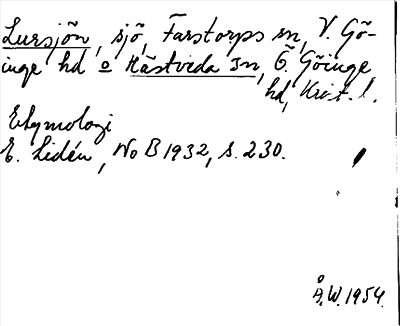 Lursjön, sjö, Farstorps sn, V. Gö-
inge hd o Hästveda sn, Ö. Göinge
hd, Krist. l.
Etymologi
E. Lidén, NoB 1932, s. 230.
Å.W. 1954.